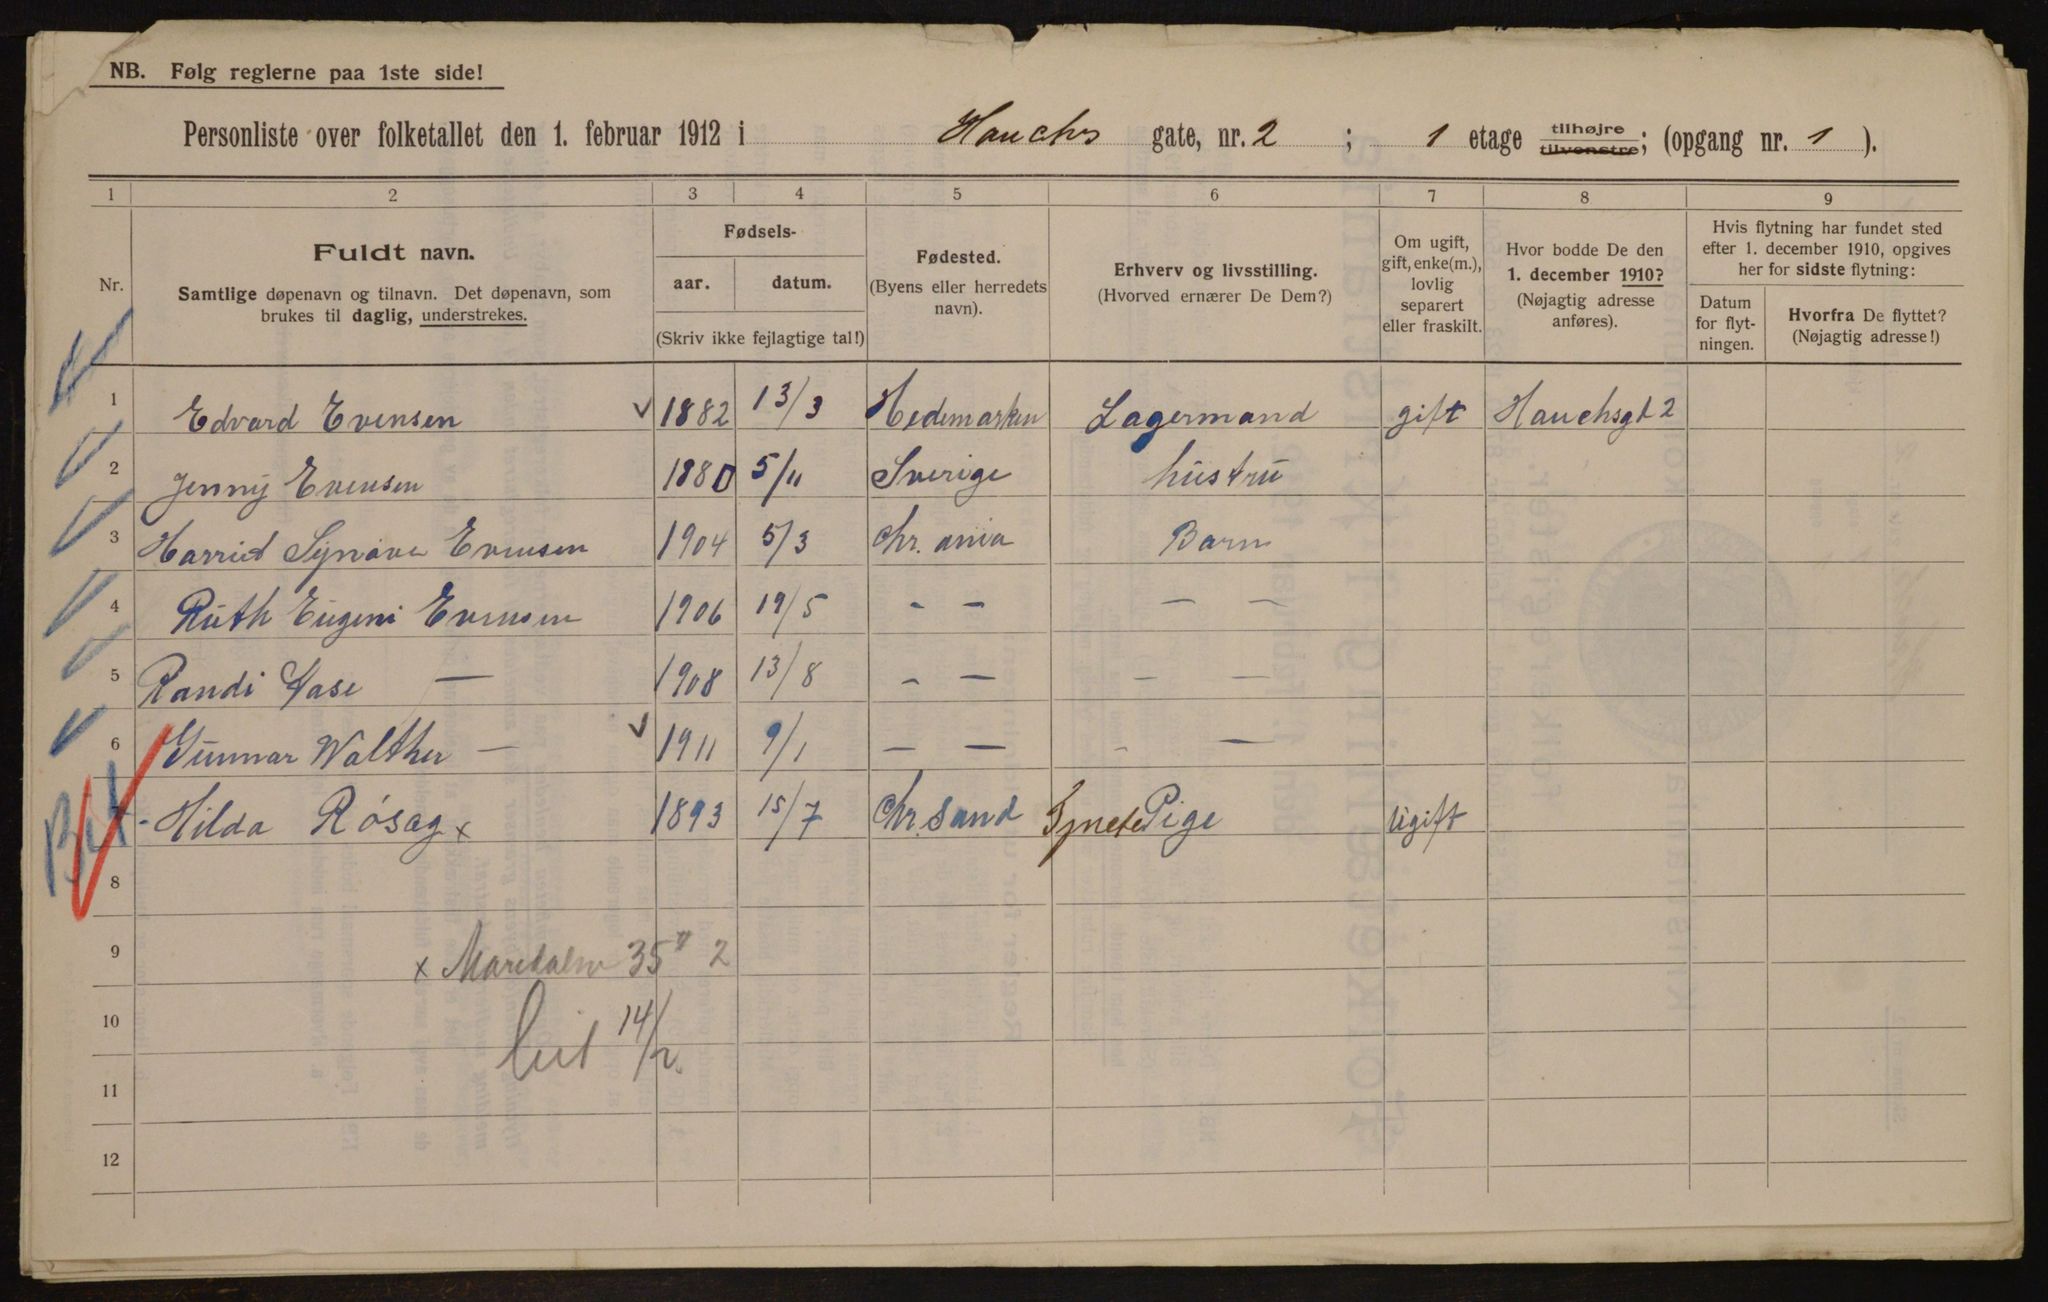 NB. Følg reglerne paa 1ste side!
Personliste over folketallet den 1. februar 1912 i Hauchs gate, nr. 2 ; 1 etage tilhøjre tilvenstre; (opgang nr. 1 ).
1 2 3 4 5 6 7 8 9
Nr.
Fuldt navn.
Samtlige døpenavn og tilnavn. Det døpenavn, som
brukes til daglig, understrekes.
Fødsels-
aar. datum.
(Skriv ikke fejlagtige tal!)
Fødested.
(Byens eller herredets
navn).
Erhverv og livsstilling.
(Hvorved ernærer De Dem?)
Om ugift,
gift, enke(m.),
lovlig
separert
eller fraskilt.
Hvor bodde De den
1. december 1910?
(Nøjagtig adresse
anføres).
Hvis flytning har fundet sted
efter 1. december 1910, opgives
her for sidste flytning:
Datum
for flyt-
ningen.
Hvorfra De flyttet?
(Nøjagtig adresse!)
1 Edvard Evensen 1882 13/3 Hedemarken Lagermand gift Hauchsgt 2
2 Jenny Evensen 1880 5/11 Sverige hustru
3 Harriet Synøve Evensen 1904 5/3 Chr. ania Barn
4 Ruth Eugeni Evensen 1906 19/5 — — — —
5 Randi Aase — 1908 13/8 — — — —
6 Gunnar Walther — 1911 9/1 — — — —
7 Hilda Rósag x 1893 15/7 Chr. sand Tjneste Pige Ugift
8
9 x Maridalsv 35 II 2
10 14/2
11
12